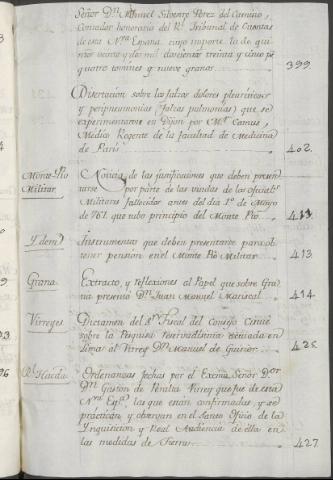 Señor Dn. Manuel Silvestre Perez del Camino,
Contador honorario del Rl. Tribunal de Cuentas
de esta Nva. España, cuyo importe la de qui-
nientos treinta y cinco ps.
quatro tomines y nueve granos. 399
Disertacion sobre los falsos dolores pleuriticos
y peripneumonias (falsas pulmonias) que se
experimentaron en Dijon por Mr. Camus,
Médico Regente de la Facultad de Medicina
de Paris 402.
Monte Pio
Militar
Noticia de las justificaciones que deben presen-
tarse por parte de las viudas de los oficials.
Militares fallecidos antes del dia 1o. de Mayo
de 761. que tubo principio del Monte Pio 411
Y dem
Instrumentos que deben presentarse para ob-
tener pension en el Monte Pio Militar 413
Grana
Extracto, y reflexiones al Papel que sobre Gra-
na presentó Dn. Juan Manuel Mariscal 414
Virreyes
Dictamen del Sr. Fiscal del Consejo
sobre la Pesquisa
Lima al Virrey Dn. Manuel de Guirior 425
Rl. Hacda.
Ordenanzas fechas por el Excmo. Señor
Dn. Gaston de Peralta Virrey que fue de esta
Nva. Espa. las que están confirmadas, y se
practican y observan en el Santo Oficio de la
Ynquisicion y Real Audiencia de ellas en
las medidas de Tierras 427